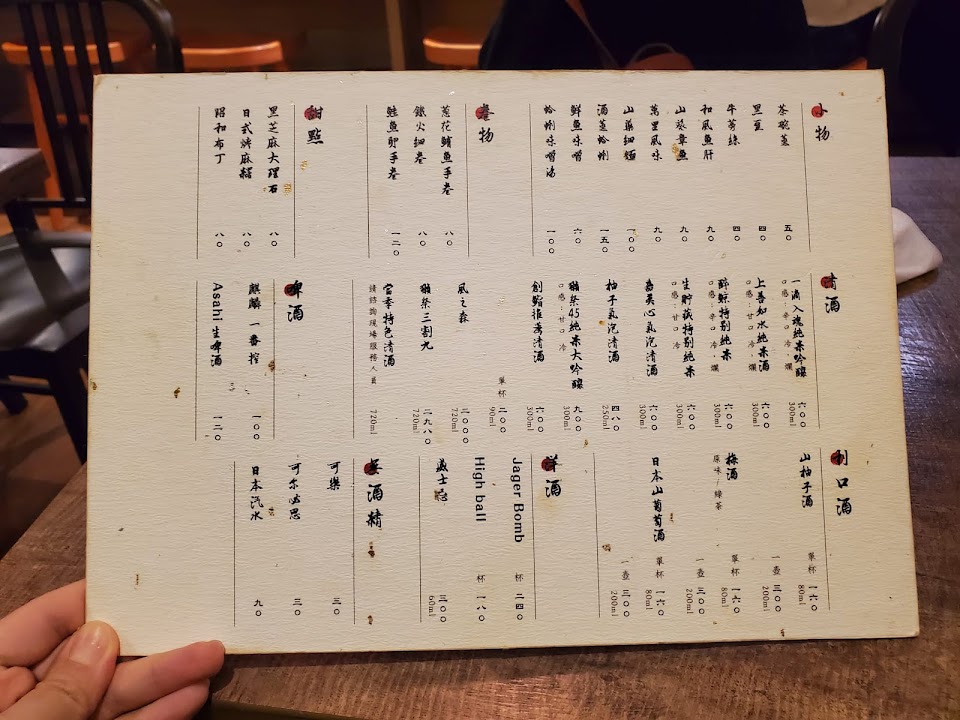 小物
茶碗蒸 五〇
黑豆 四〇
牛蒡絲 四〇
和風魚肝 九〇
山葵章魚 九〇
萬里風味 九〇
山藥細麵 一〇〇
酒蒸蛤蜊 一五〇
鮮魚味噌 六〇
蛤蜊味噌湯 一〇〇
卷物
蔥花鮪魚手卷 八〇
鐵火細卷 八〇
鮭魚卵手卷 一二〇
甜點
黑芝麻大理石 八〇
日式烤麻糬 八〇
昭和布丁 八〇
清酒
一滴入魂純米吟釀 六〇〇
口感:辛口 冷、爛 300ml
上善如水純米酒 六〇〇
口感:甘口 冷、爛 300ml
醉鯨特別純米 六〇〇
口感:辛口 冷、爛 300ml
生貯藏特別純米 六〇〇
口感:甘口 冷 300ml
氣泡清酒 六〇〇
300ml
柚子氣泡清酒 四八〇
250ml
獺祭45純米大吟釀 九〇〇
口感:甘口 冷 300ml
創鮨推薦清酒 六〇〇
300ml
單杯 二〇〇
90ml
風之森 三〇〇〇
720ml
獺祭三割九 三九八〇
720ml
當季特色清酒
請諮詢現場服務人員 720ml
啤酒
麒麟一番搾 一〇〇
Asahi 生啤酒 一二〇
利口酒
山柚子酒 單杯 一六〇
80ml
一壺 三〇〇
200ml
梅酒 單杯 一六〇
原味/綠茶 80ml
一壺 三〇〇
200ml
日本山葡萄酒 單杯 一六〇
80ml
一壺 三〇〇
200ml
洋酒
Jager Bomb 杯 二四〇
High ball 杯 一八〇
威士忌 三〇〇
60ml
無酒精
可樂 三〇
可爾必思 三〇
日本汽水 九〇